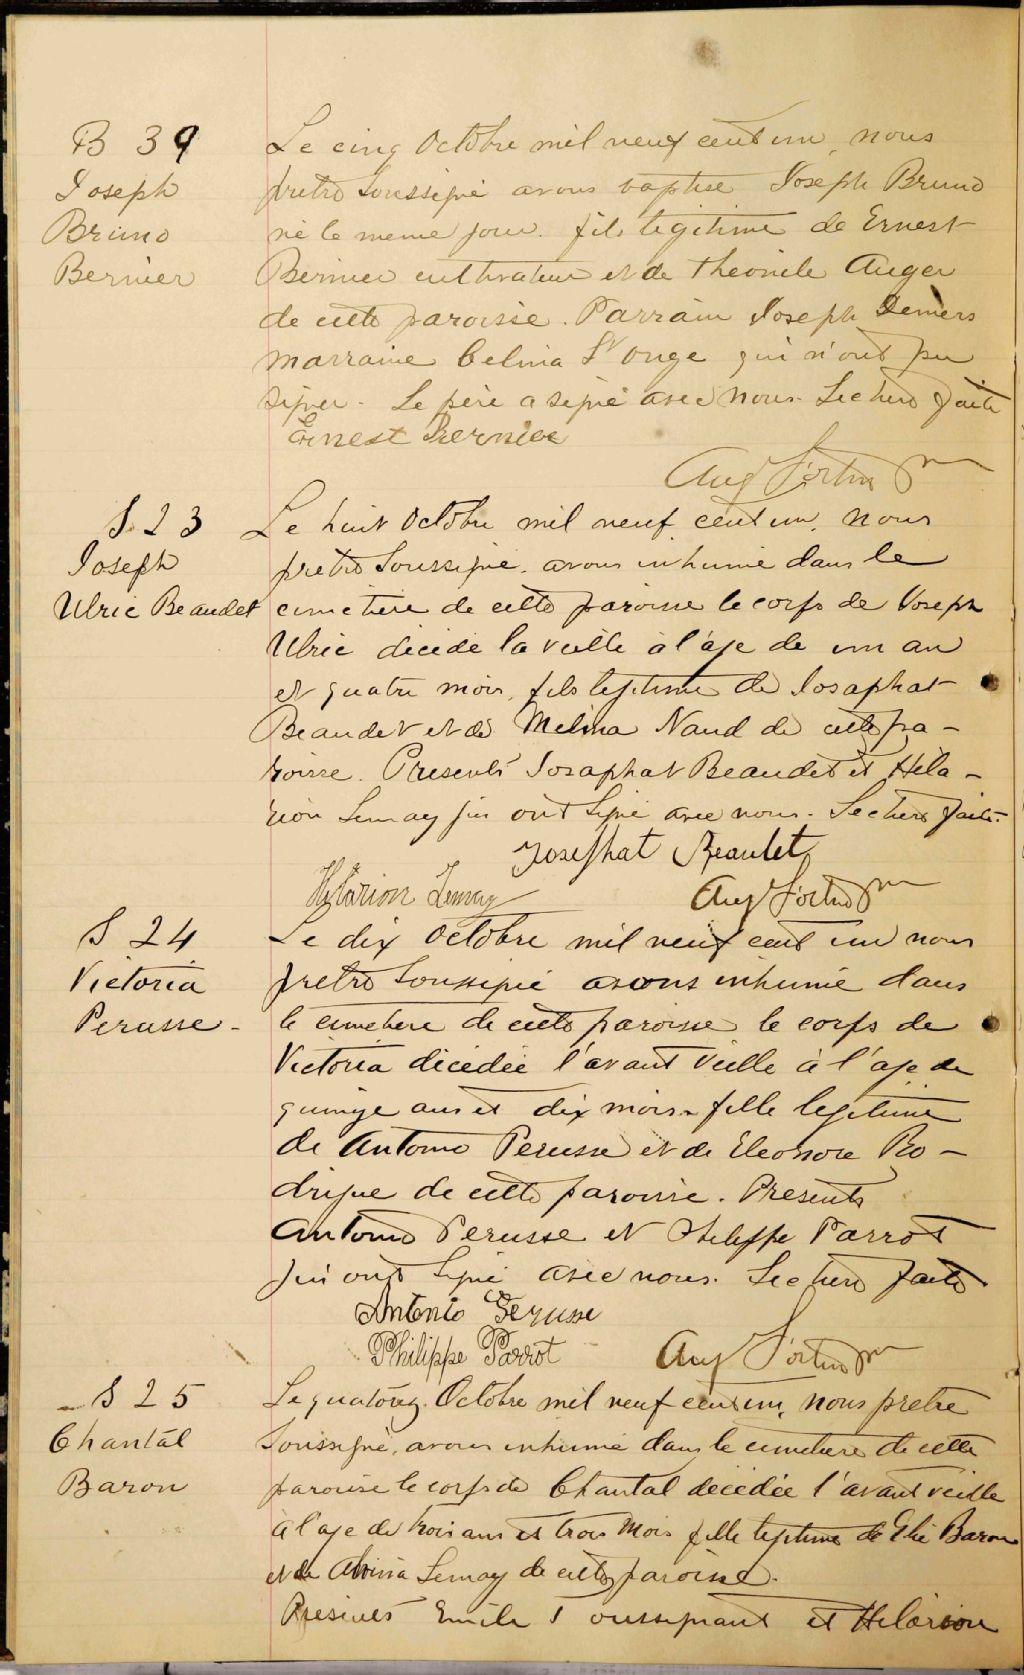 B 39
Joseph
Bruno
Bernier
Le cinq Octobre mil neuf cent un, nous
pretre soussigné avons baptisé Joseph Bruno
né le meme jour. fils legitime de Ernest
Bernier cultivateur et de Theonile Auger
de cette paroisse. Parrain Joseph Demers
marraine Celina St Onge qui n'ont pu
signer. Le père a signé avec nous. Lecture faite
Ernest Bernier
Aug Fortin ptre
S 23
Joseph
Ulric Beaudet
Le huit Octobre mil neuf cent un, nous
pretre soussigné. avons inhumé dans le
cimetière de cette paroisse le corps de Joseph
Ulric décédé la veille à l'âge de un an
et quatre mois, fils legitime de Josaphat
Beaudet et de Melina Naud de cette pa-
roisse. Presents Josaphat Beaudet et Hila-
rion Lemay qui ont signé avec nous. Lecture faite.
Josephat Beaudet
Hilarion Lemay
Aug Fortin ptre
S 24
Victoria
Perusse -
Le dix Octobre mil neuf cent un nous
pretre soussigné avons inhumé dans
le cimetiere de cette paroisse le corps de
Victoria décédée l'avant veille à l'age de
quinze ans et dix mois. fille legitime
de Antonio Perusse et de Eleonore Ro-
drigue de cette paroisse. Presents
Antonio Perusse et Philippe Parrot
qui ont signé avec nous. Lecture faite
Antonio Perusse
Philippe Parrot
Aug Fortin ptre
S 25
Chantal
Baron
Le quatorze Octobre mil neuf cent un, nous pretre
soussigné, avons inhumé dans le cimetiere de cette
paroisse le corps de Chantal décédée l'avant veille
à l'age de trois ans et trois mois fille legitime de Elie Baron
et de Alvina Lemay de cette paroisse.
Presents Emile Toussignant et Hilarion